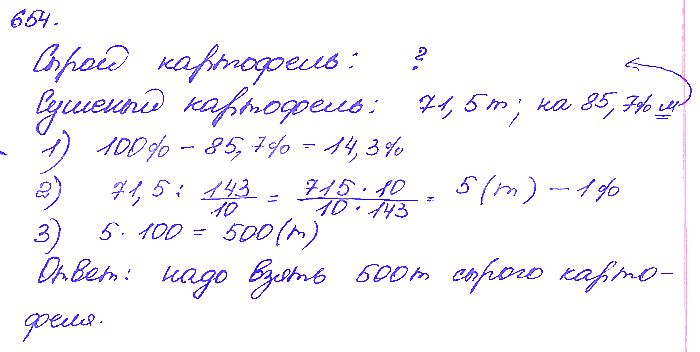 654.
Сырой картофель: ?
Сушеный картофель: 71,5 т; на 85,7% м
1) 100% - 85,7% = 14,3%
2) 71,5 : 143/10 = 715·10/10·143 = 5 (т) - 1%
3) 5·100 = 500 (т)
Ответ: надо взять 500т сырого карто-
феля.